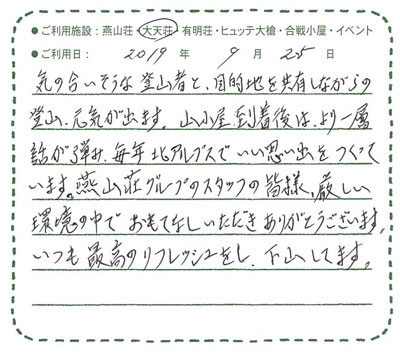 ●ご利用施設：燕山荘・大天荘・有明荘・ヒュッテ大槍・合戦小屋・イベント
●ご利用日： 2019 年 9 月 25 日
気の合いそうな登山者と、目的地を共有しながらの
登山、元気が出ます。山小屋到着後は、より一層
話が弾み、毎年北アルプスでいい思い出をつくって
います。燕山荘グループのスタッフの皆様、厳しい
環境の中でおもてなしいただきありがとうございます。
いつも最高のリフレッシュをし、下山してます。